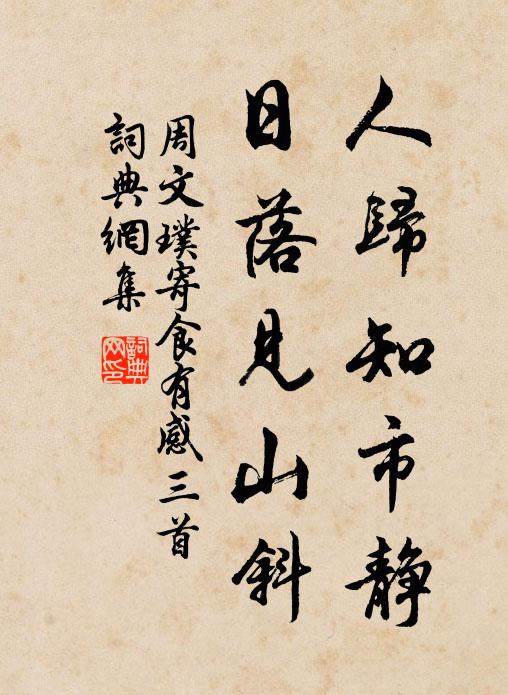 人歸知市静
日落見山斜
周文璞寄食有感三首
詞典網集
詞典網印